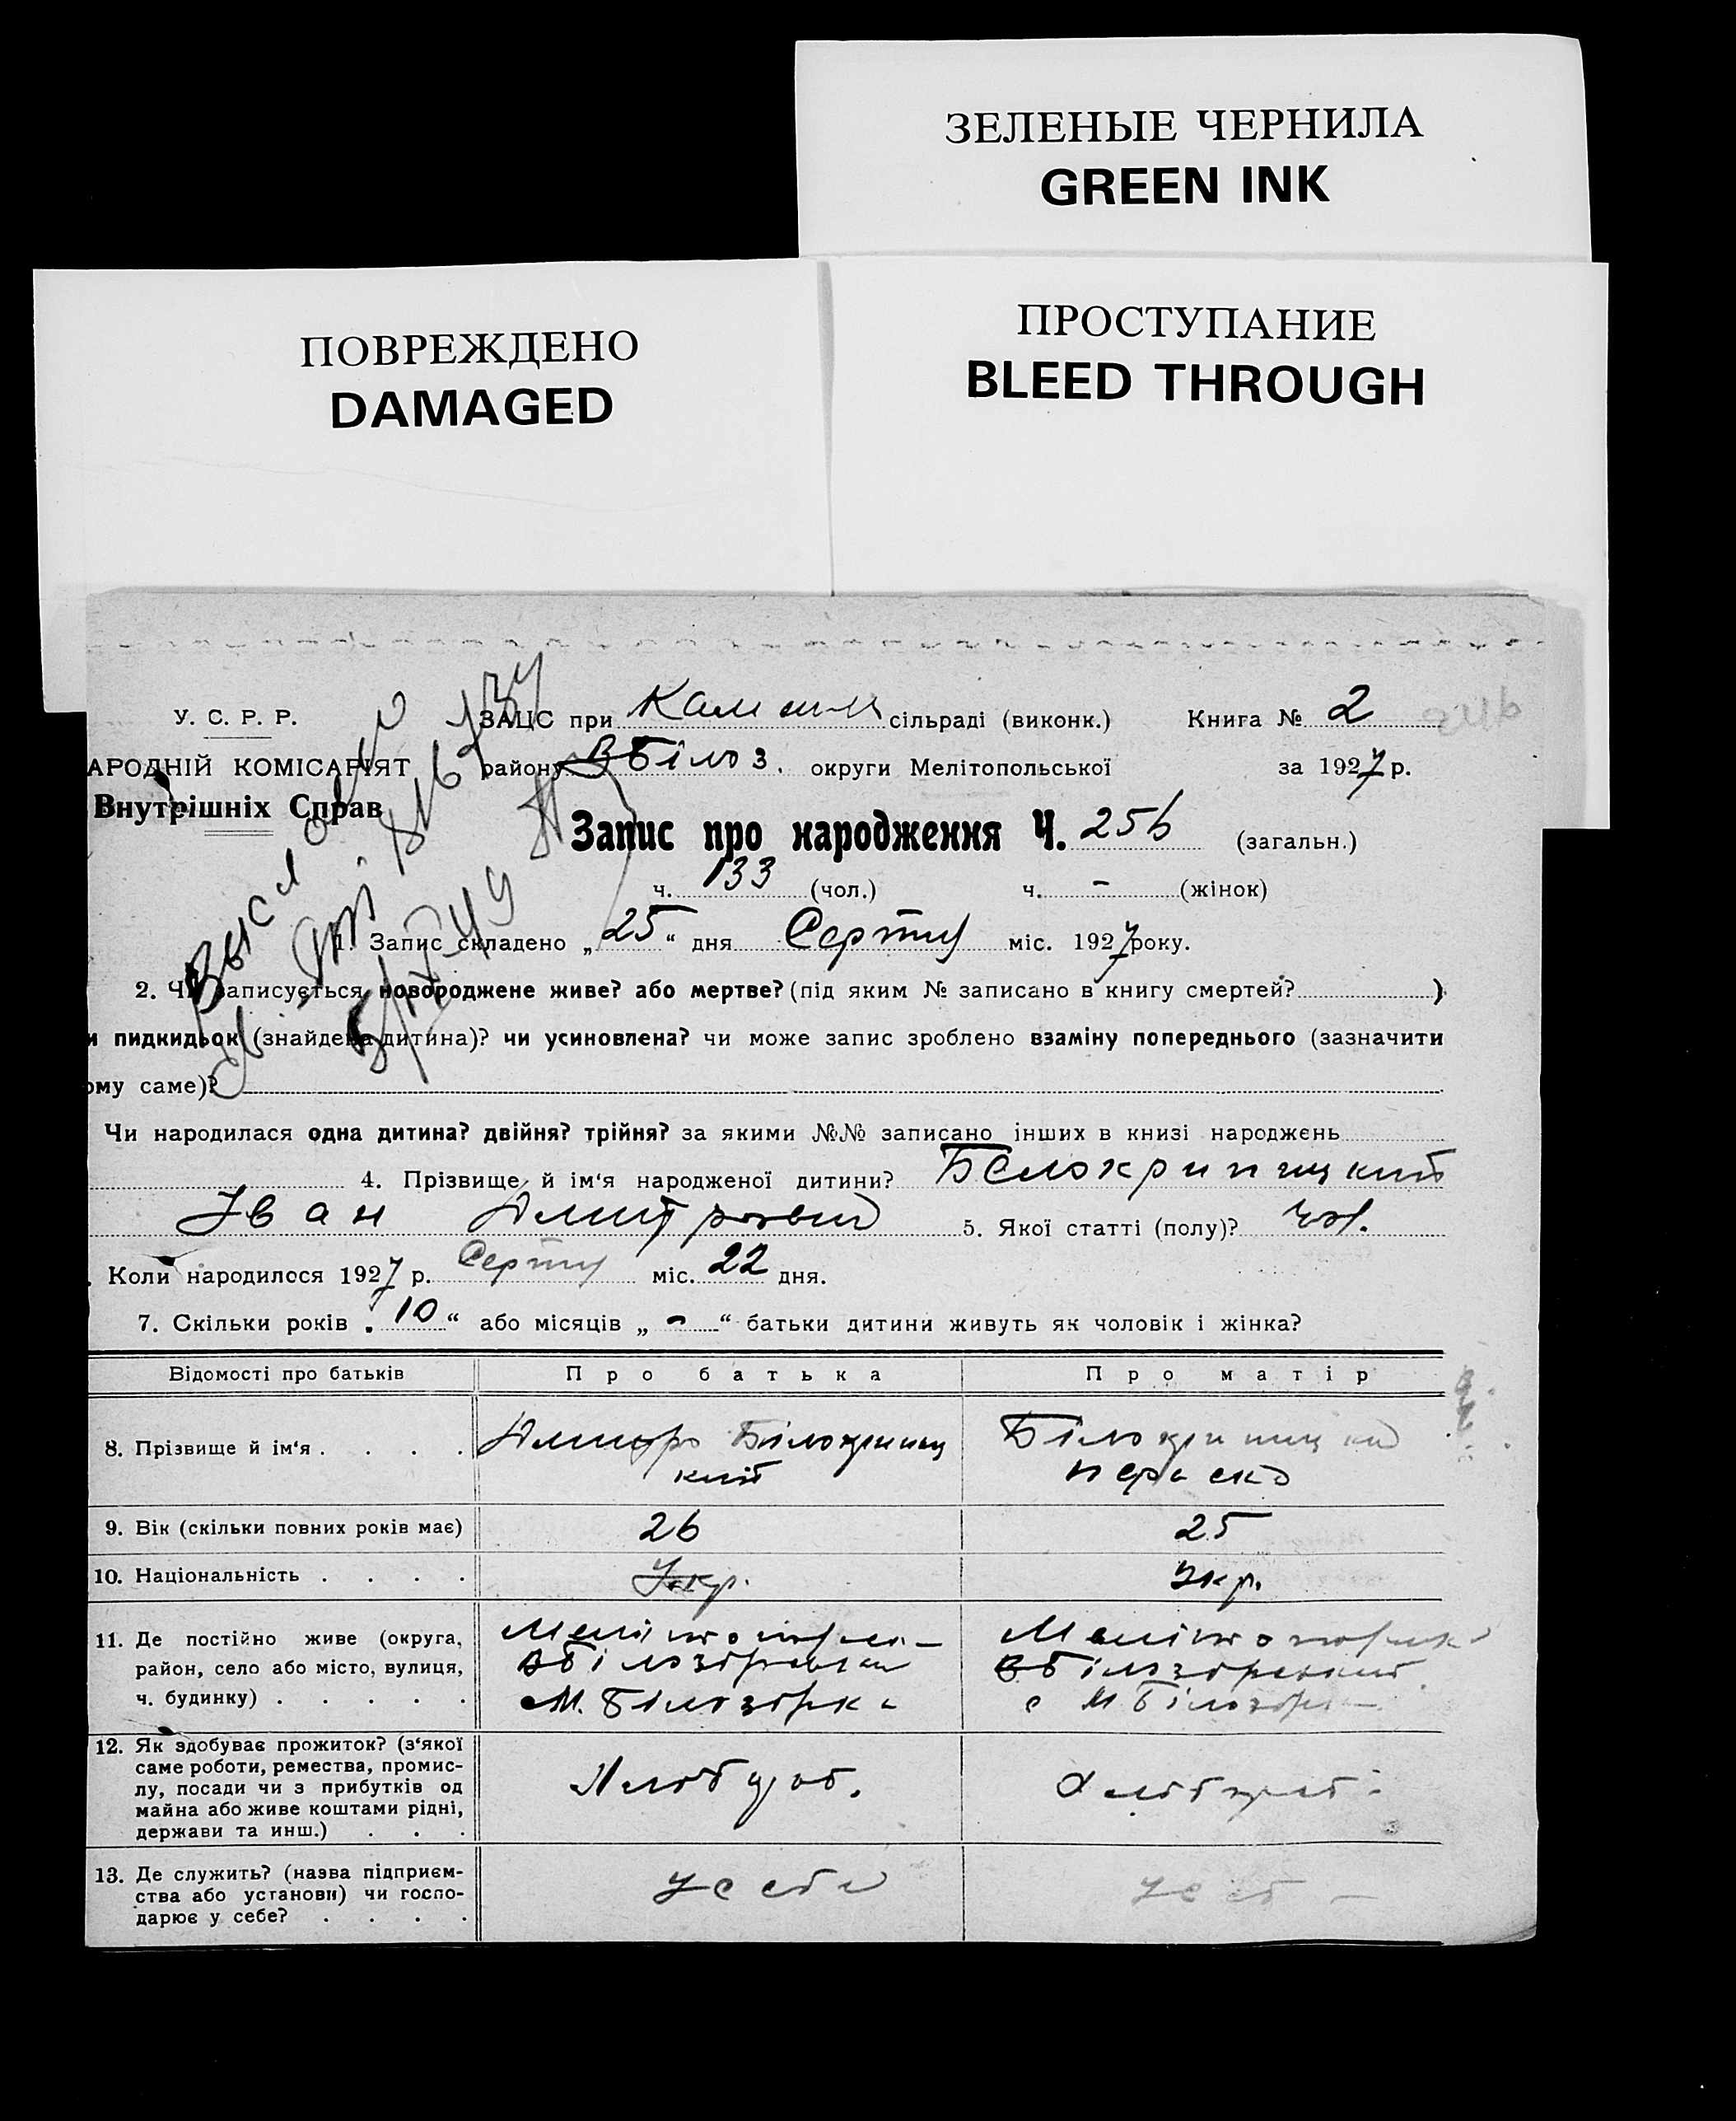 ЗЕЛЕНЫЕ ЧЕРНИЛА
GREEN INK
ПОВРЕЖДЕНО
DAMAGED
ПРОСТУПАНИЕ
BLEED THROUGH
У. С. Р. Р.
АРОДНІЙ КОМІСАРІЯТ
Внутрішніх Справ
ЗАГС при сільраді (виконк.) Книга № 2
району ВБілоз. округи Мелітопольської за 1927 р.
Запис про народження Ч. 256 (загальн.)
ч. 133 (чол.) ч. - (жінок)
1. Запис складено „ 25 “ дня Серпня міс. 1927 року.
2. Чи записується новороджене живе? або мертве? (під яким № записано в книгу смертей? )
и пидкидьок (знайдена дитина)? чи усиновлена? чи може запис зроблено взаміну попереднього (зазначити
ому саме)?
Чи народилася одна дитина? двійня? трійня? за якими №№ записано інших в книзі народжень
4. Прізвище й ім‘я народженої дитини? Білокриницкий
Іван Дмитрович 5. Якої статті (полу)? чол.
. Коли народилося 1927 р. Серпня міс. 22 дня.
7. Скільки років „ 10 “ або місяців „ - “ батьки дитини живуть як чоловік і жінка?
Відомості про батьків Про батька Про матір
8. Прізвище й ім‘я . . . . Дмитро Білокриниц
кий
Білокриницка
Параска
9. Вік (скільки повних років має) 26 25
10. Національність . . . . Укр. Укр.
11. Де постійно живе (округа,
район, село або місто, вулиця,
ч. будинку) . . . . .
ВБілозірський
М. Білозірка
ВБілозірський
с М Білозірка
12. Як здобуває прожиток? (з‘якої
саме роботи, ремества, промис-
лу, посади чи з прибутків од
майна або живе коштами рідні,
держави та инш.) . . .
Хлібороб.
Хлібороб.
13. Де служить? (назва підприєм-
ства або установи) чи госпо-
дарює у себе? . . . .
У себе
У себе